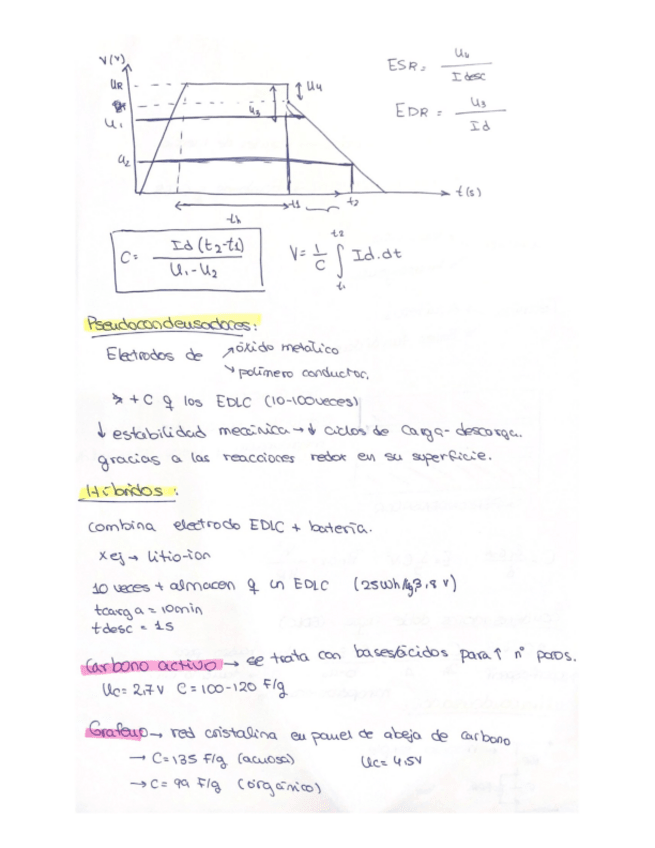 V(V)
UR
U1
U2
U3
U4
th
t1
t2
t(s)
ESR = U4 / I desc
EDR = U3 / Id
C = Id (t2-t1) / U1-U2
V = 1/C ∫ t1 t2 Id.dt
Pseudocondensadores:
Electrodos de ↗ óxido metálico
↘ polímero conductor.
+C q los EDLC (10-100 veces)
↓ estabilidad mecánica → ↓ ciclos de carga-descarga.
gracias a las reacciones redox en su superficie.
Híbridos:
combina electrodo EDLC + batería.
x ej → litio-ion
10 veces + almacen q un EDLC (25Wh/kg, 3,8 V)
tcarga = 10min
tdesc = 1s
Carbono activo → se trata con bases/ácidos para ↑ nº poros.
Uc = 2,7 V C = 100-120 F/g
Grafeno → red cristalina en panel de abeja de carbono
→ C = 135 F/g (acuosa) Uc = 4,5V
→ C = 99 F/g (orgánico)